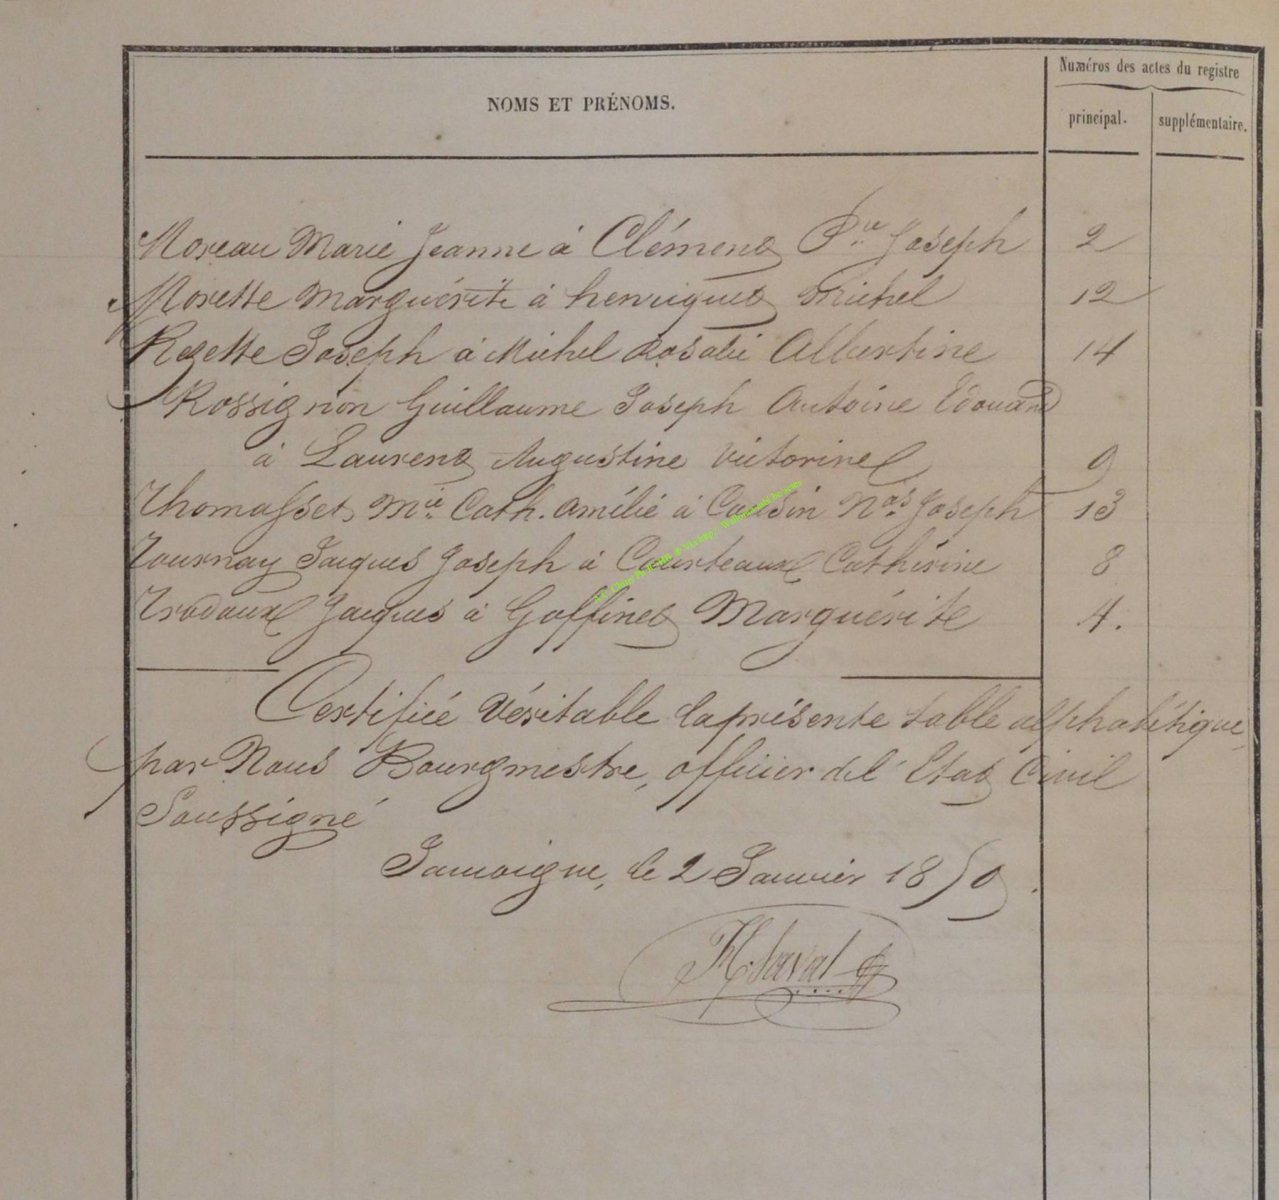 Numéros des actes du registre
NOMS ET PRÉNOMS.
principal.
supplémentaire.
Moreau Marie Jeanne à Clément P.re Joseph 2
Morette Marguérite à henriquet Michel 12
Rezette Joseph à Michel Rosalie Albertine 14
Rossignon Guillaume Joseph Antoine Edouard
à Laurent Augustine Victorine 9
Thomasset M.ie Cath. Amélie à Causin N.as Joseph 13
Tournay Jacques Joseph à Courteaux Cathérine 8
Trodoux Jacques à Goffinet Marguérite 4.
Certifiée Véritable la présente table alphabétique,
par Nous Bourgmestre, officier de l'Etat Civil
Soussigné
Jamoigne, le 2 Janvier 1850.